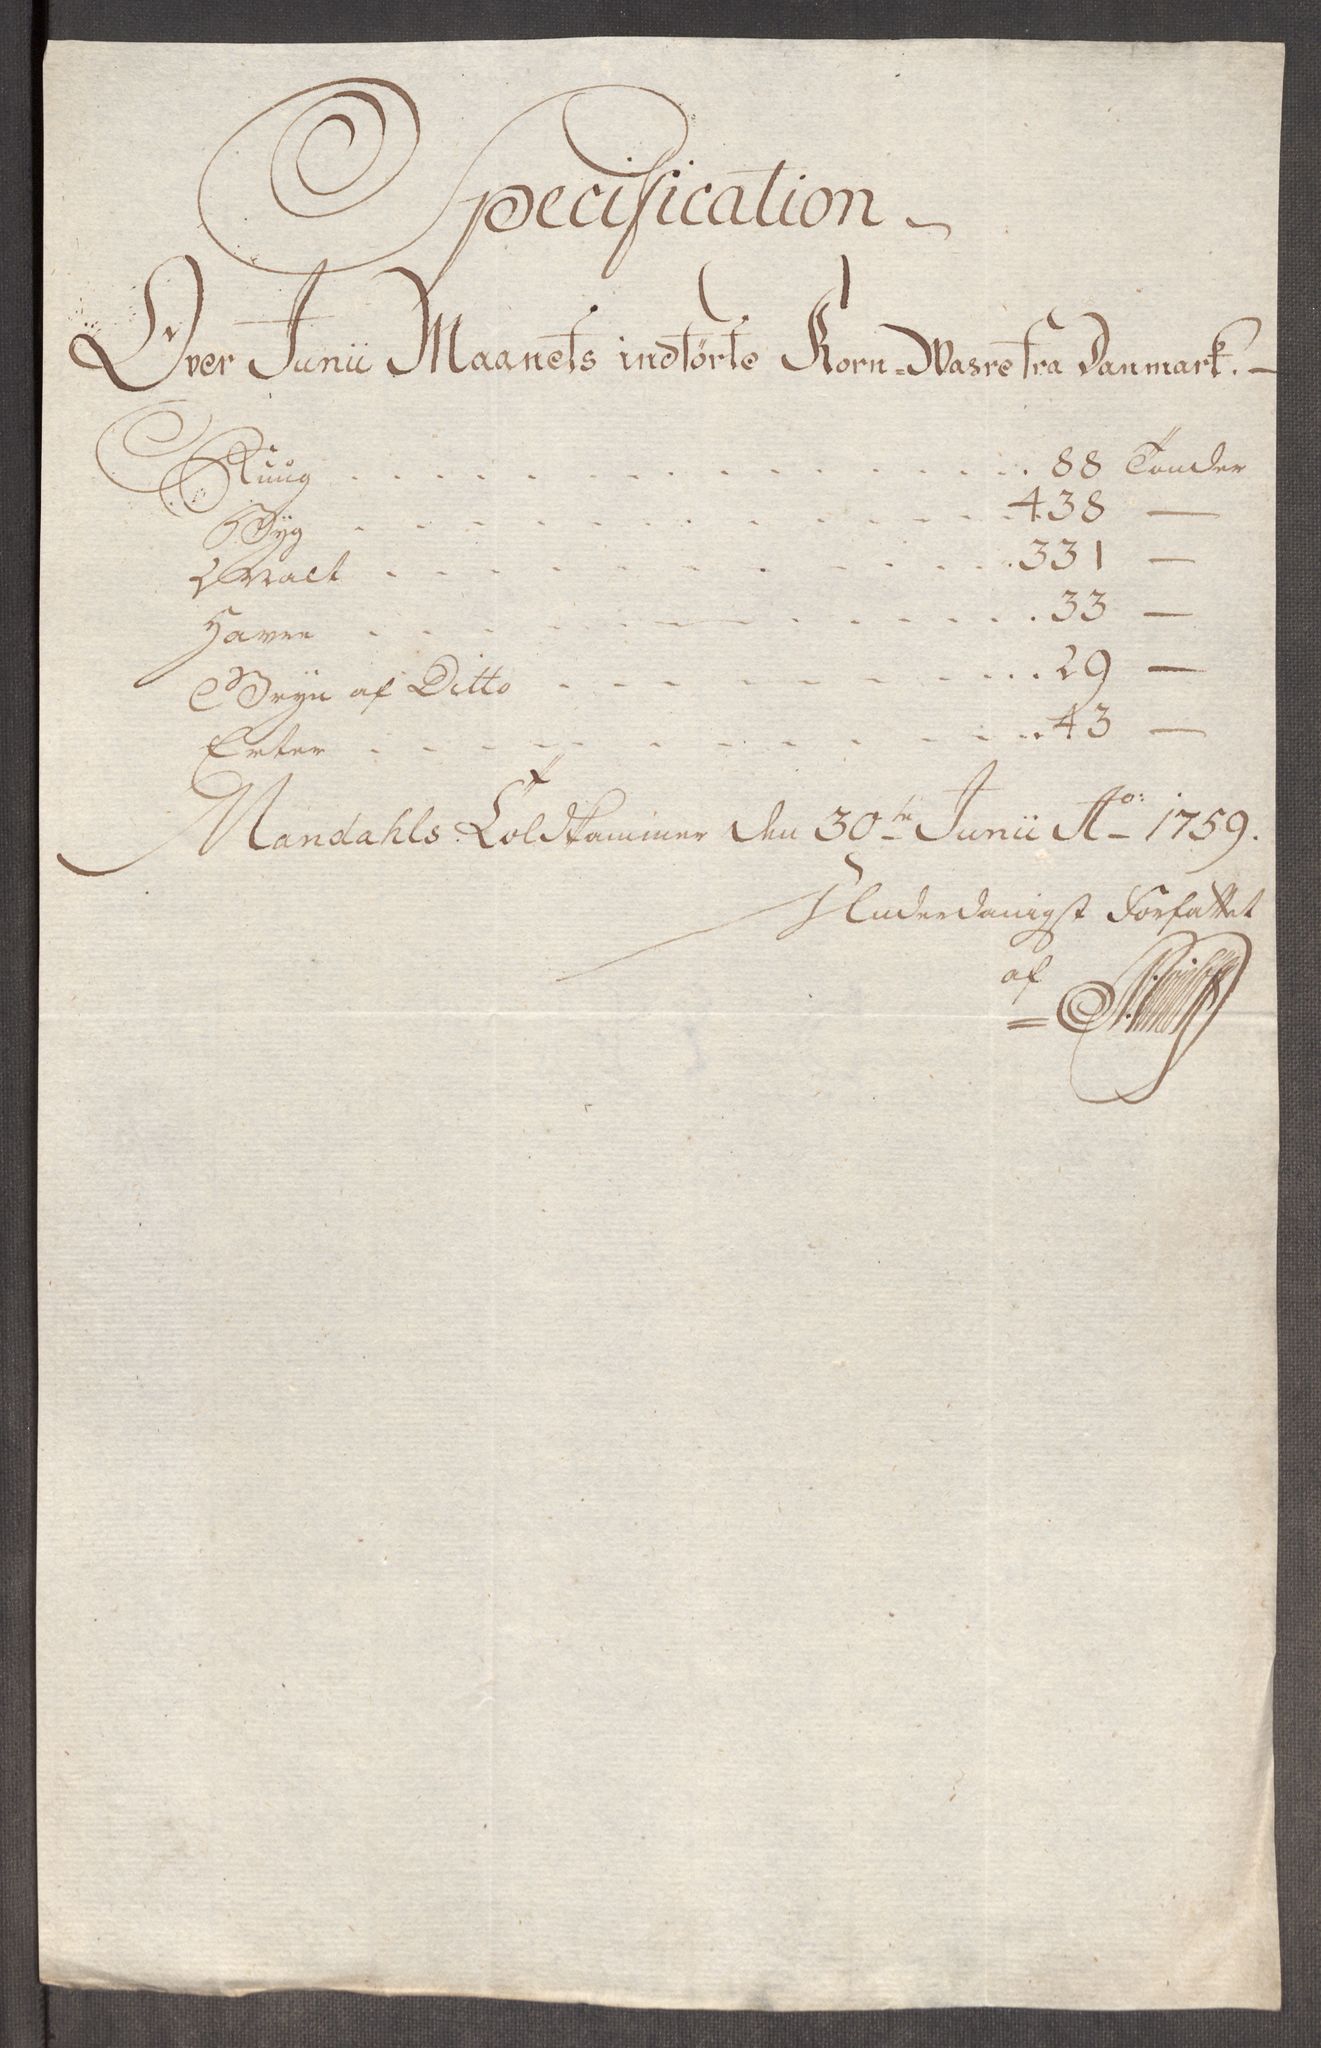 Specification
Over Junii Maanets indførte Korn-Wahre fra Danmark.
Ruug . . . . . . . . . . . . 88 Tønder
Byg . . . . . . . . . . . . 438 —
Malt . . . . . . . . . . . . 331 —
Havre . . . . . . . . . . . . 33 —
Gryn af Ditto . . . . . . . . . 29 —
Erter . . . . . . . . . . . . 43 —
Mandahls Toldkammer den 30te Junii Ao: 1759.
Underdanigst Forfattet
af